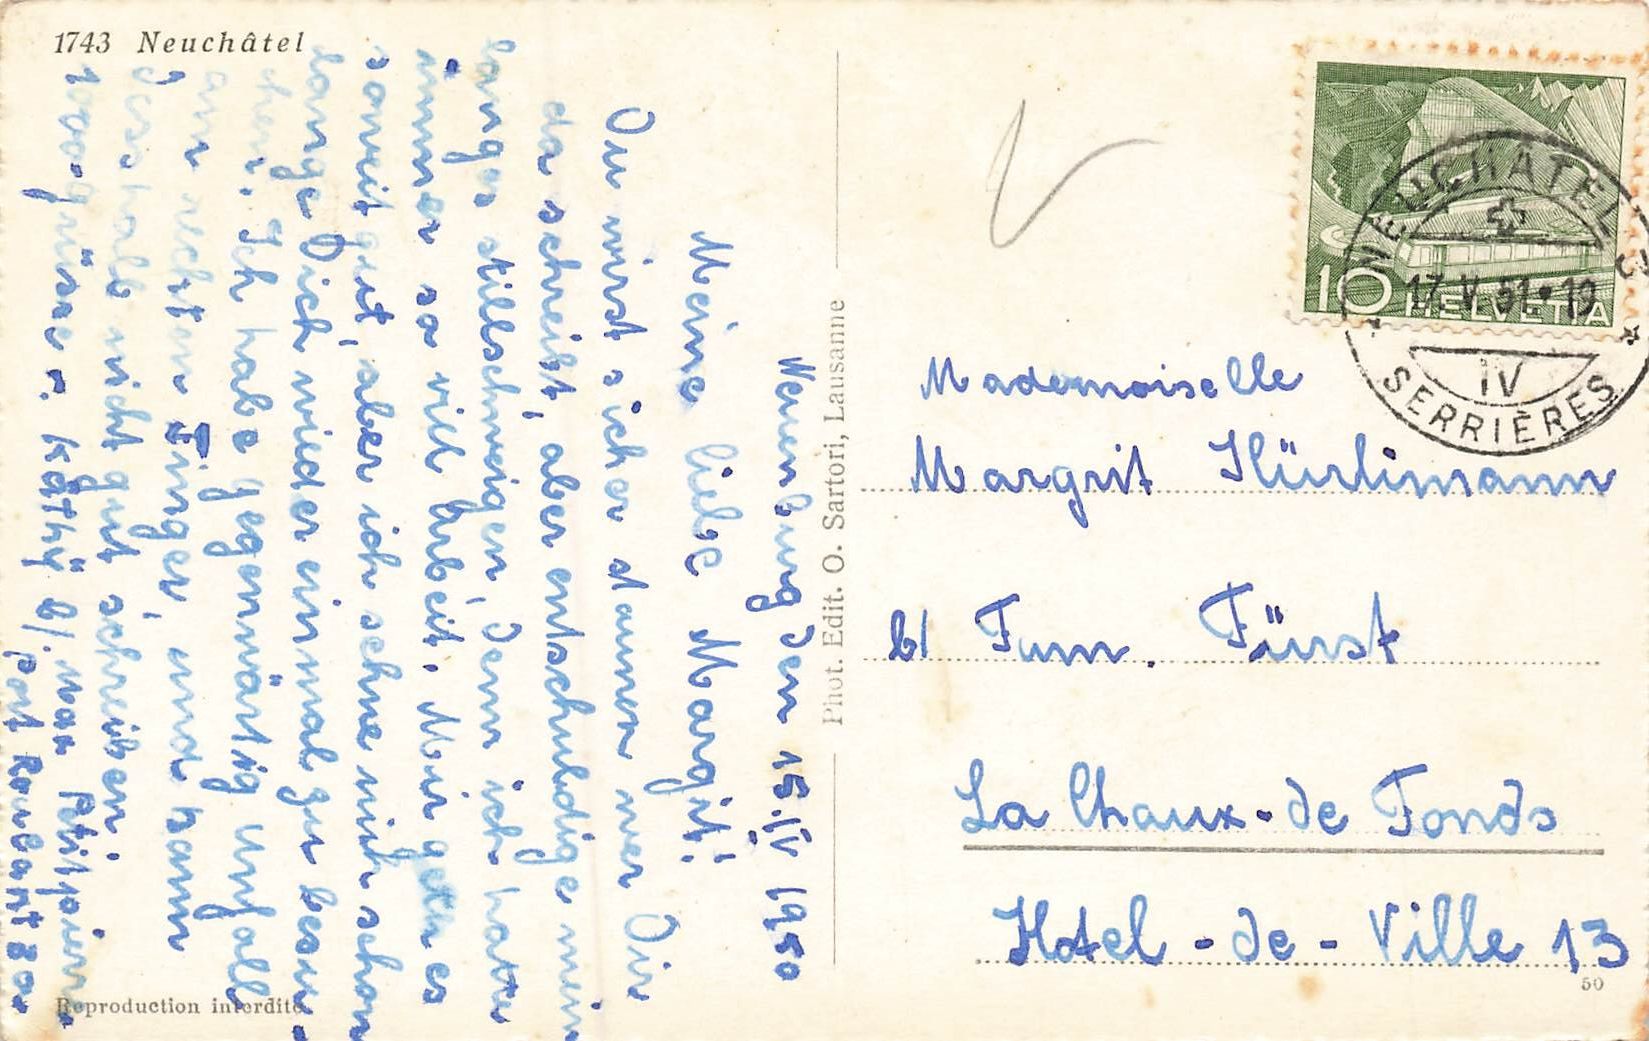 1743 Neuchâtel
Neuenburg den 15.IV 1950
Meine liebe Margit!
Du wirst sicher staunen wer Dir
da schreibt, aber entschuldige mein
langes stillschweigen, denn ich hatte
immer so viel Arbeit. Mir geht es
soweit gut, aber ich sehne mich schon
lange Dich wieder einmal zu besu-
chen. Ich habe gegenwärtig Unfall
am rechten Finger, und kann
deshalb nicht gut schreiben.
1000-grüsse v. Käthy b/. Petitpierre
port Roulant 30a
Phot. Edit. O. Sartori, Lausanne
Reproduction interdite
HELVETIA
10
NEUCHÂTEL 3
17.V.51.19
IV
SERRIÈRES
Mademoiselle
Margrit Hürlimann
b/ Fam. Fürst
La Chaux-de Fonds
Hotel-de-Ville 13
50